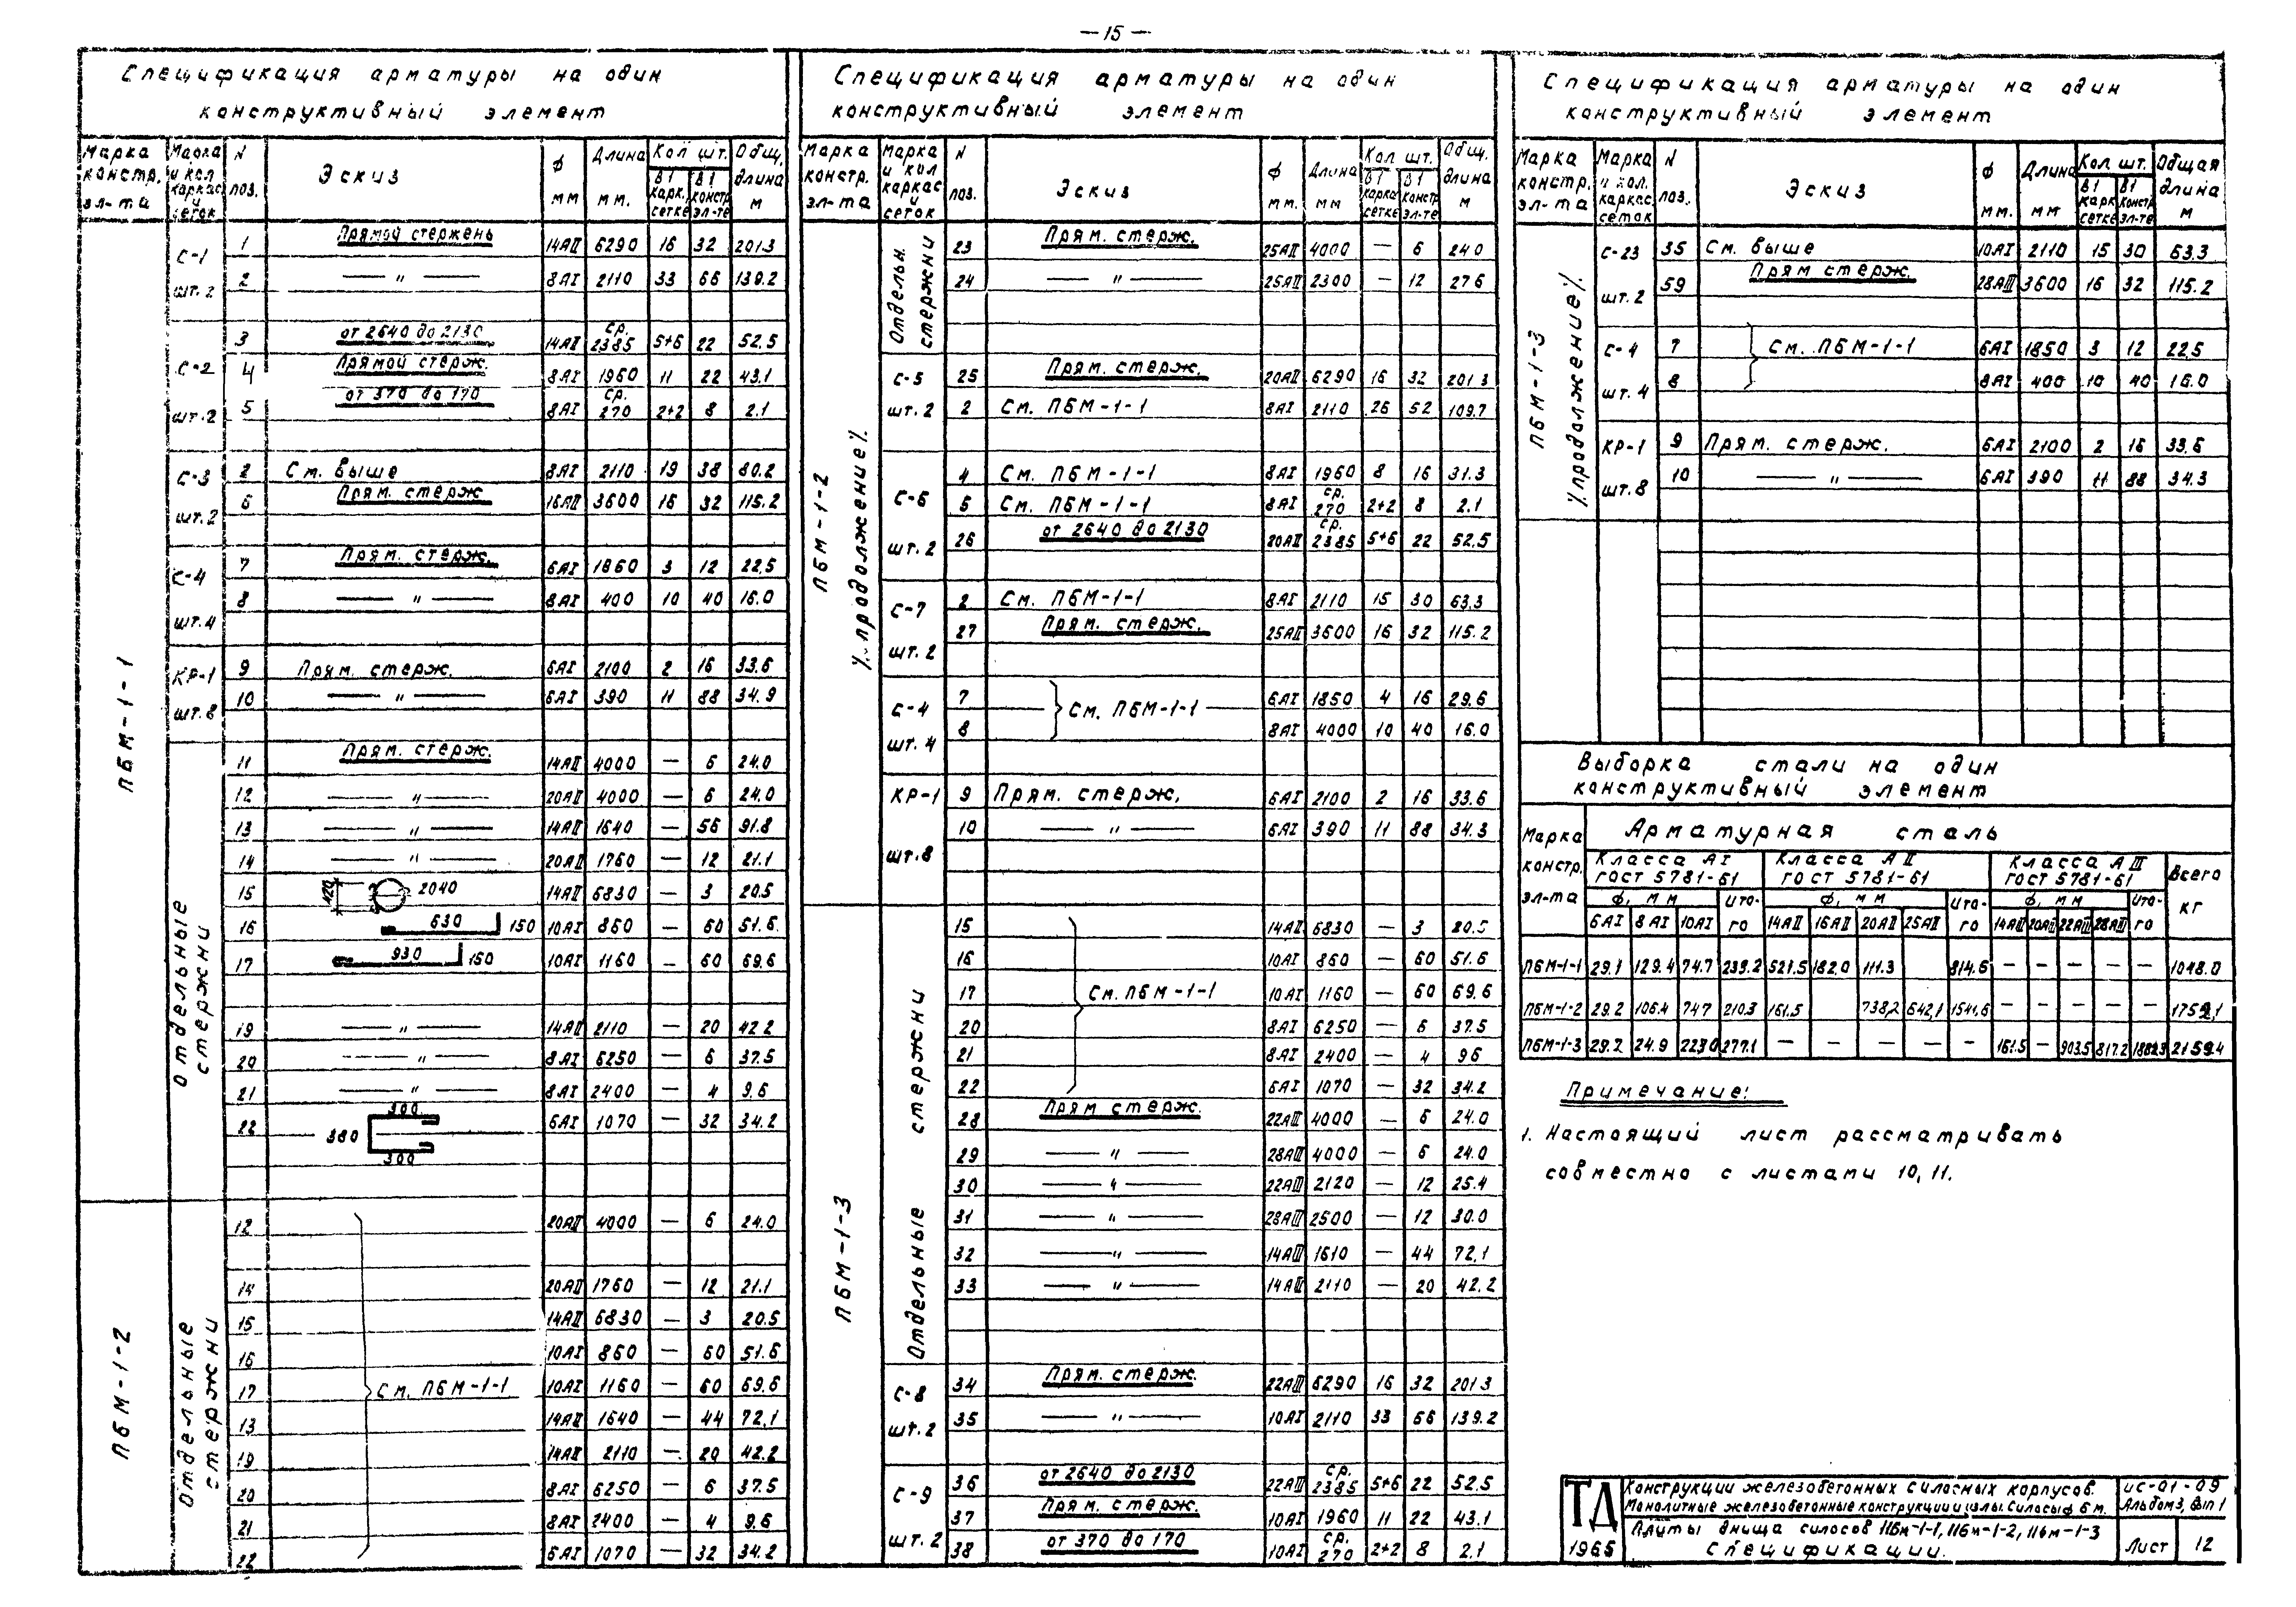 — 15 —
Спецификация арматуры на один
конструктивный элемент
Марка констр. эл-та | Марка и кол каркас и сеток | N поз. | Эскиз | ф мм | Длина мм. | Кол шт. в 1 карк. сетке | в 1 констр эл-те | Общ. длина м
ПБМ-1-1
С-1 шт. 2 | 1 | Прямой стержень | 14АII | 6290 | 16 | 32 | 201.3
2 | —"— | 8АI | 2110 | 33 | 66 | 139.2
С-2 шт. 2 | 3 | от 2640 до 2130 | 14АII | ср. 2385 | 5+6 | 22 | 52.5
4 | Прямой стерж. | 8АI | 1960 | 11 | 22 | 43.1
5 | от 370 до 170 | 8АI | ср. 270 | 2+2 | 8 | 2.1
С-3 шт. 2 | 2 | См. выше | 8АI | 2110 | 19 | 38 | 80.2
6 | Прям. стерж | 16АII | 3600 | 16 | 32 | 115.2
С-4 шт. 4 | 7 | Прям. стерж. | 6АI | 1860 | 3 | 12 | 22.5
8 | —"— | 8АI | 400 | 10 | 40 | 16.0
КР-1 шт. 8 | 9 | Прям. стерж. | 6АI | 2100 | 2 | 16 | 33.6
10 | —"— | 6АI | 390 | 11 | 88 | 34.9
Отдельные стержни
11 | Прям. стерж. | 14АII | 4000 | — | 6 | 24.0
12 | —"— | 20АII | 4000 | — | 6 | 24.0
13 | —"— | 14АII | 1640 | — | 56 | 91.8
14 | —"— | 20АII | 1760 | — | 12 | 21.1
15 | 420 2040 | 14АII | 6830 | — | 3 | 20.5
16 | 630 150 | 10АI | 860 | — | 60 | 51.6
17 | 930 150 | 10АI | 1160 | — | 60 | 69.6
19 | —"— | 14АII | 2110 | — | 20 | 42.2
20 | —"— | 8АI | 6250 | — | 6 | 37.5
21 | —"— | 8АI | 2400 | — | 4 | 9.6
22 | 300 380 300 | 6АI | 1070 | — | 32 | 34.2
ПБМ-1-2
Отдельные стержни
См. ПБМ-1-1
12 | 20АII | 4000 | — | 6 | 24.0
14 | 20АII | 1760 | — | 12 | 21.1
15 | 14АII | 6830 | — | 3 | 20.5
16 | 10АI | 860 | — | 60 | 51.6
17 | 10АI | 1160 | — | 60 | 69.6
13 | 14АII | 1640 | — | 44 | 72.1
19 | 14АII | 2110 | — | 20 | 42.2
20 | 8АI | 6250 | — | 6 | 37.5
21 | 8АI | 2400 | — | 4 | 9.6
22 | 6АI | 1070 | — | 32 | 34.2
Спецификация арматуры на один
конструктивный элемент
Марка констр. эл-та | Марка и кол каркас и сеток | N поз. | Эскиз | ф мм. | Длина мм | Кол шт. в 1 каркас сетке | в 1 констр эл-те | Общ. длина м
ПБМ-1-2 /продолжение/
Отдельн. стержни
23 | Прям. стерж. | 25АII | 4000 | — | 6 | 24.0
24 | —"— | 25АII | 2300 | — | 12 | 27.6
С-5 шт. 2 | 25 | Прям. стерж. | 20АII | 6290 | 16 | 32 | 201.3
2 | См. ПБМ-1-1 | 8АI | 2110 | 26 | 52 | 109.7
С-6 шт. 2 | 4 | См. ПБМ-1-1 | 8АI | 1960 | 8 | 16 | 31.3
5 | См. ПБМ-1-1 | 8АI | ср. 270 | 2+2 | 8 | 2.1
26 | от 2640 до 2130 | 20АII | ср. 2385 | 5+6 | 22 | 52.5
С-7 шт. 2 | 2 | См. ПБМ-1-1 | 8АI | 2110 | 15 | 30 | 63.3
27 | Прям. стерж. | 25АII | 3600 | 16 | 32 | 115.2
С-4 шт. 4 | 7 | См. ПБМ-1-1 | 6АI | 1850 | 4 | 16 | 29.6
8 | 8АI | 4000 | 10 | 40 | 16.0
КР-1 шт. 8 | 9 | Прям. стерж. | 6АI | 2100 | 2 | 16 | 33.6
10 | —"— | 6АI | 390 | 11 | 88 | 34.3
ПБМ-1-3
Отдельные стержни
См. ПБМ-1-1
15 | 14АII | 6830 | — | 3 | 20.5
16 | 10АI | 860 | — | 60 | 51.6
17 | 10АI | 1160 | — | 60 | 69.6
20 | 8АI | 6250 | — | 6 | 37.5
21 | 8АI | 2400 | — | 4 | 9.6
22 | 6АI | 1070 | — | 32 | 34.2
28 | Прям стерж. | 22АIII | 4000 | — | 6 | 24.0
29 | —"— | 28АIII | 4000 | — | 6 | 24.0
30 | —"— | 22АIII | 2120 | — | 12 | 25.4
31 | —"— | 28АIII | 2500 | — | 12 | 30.0
32 | —"— | 14АIII | 1610 | — | 44 | 72.1
33 | —"— | 14АIII | 2110 | — | 20 | 42.2
С-8 шт. 2 | 34 | Прям. стерж. | 22АIII | 6290 | 16 | 32 | 201.3
35 | —"— | 10АI | 2110 | 33 | 66 | 139.2
С-9 шт. 2 | 36 | от 2640 до 2130 | 22АIII | ср. 2385 | 5+6 | 22 | 52.5
37 | Прям. стерж. | 10АI | 1960 | 11 | 22 | 43.1
38 | от 370 до 170 | 10АI | ср. 270 | 2+2 | 8 | 2.1
Спецификация арматуры на один
конструктивный элемент
Марка констр. эл-та | Марка и кол. каркас. сеток | N поз. | Эскиз | ф мм. | Длина мм | Кол шт. в 1 карк сетке | в 1 констр эл-те | Общая длина м
ПБМ-1-3 /продолжение/
С-23 шт. 2 | 35 | См. выше | 10АI | 2110 | 15 | 30 | 63.3
59 | Прям стерж. | 28АIII | 3600 | 16 | 32 | 115.2
С-4 шт. 4 | 7 | См. ПБМ-1-1 | 6АI | 1850 | 3 | 12 | 22.5
8 | 8АI | 400 | 10 | 40 | 16.0
КР-1 шт. 8 | 9 | Прям. стерж. | 6АI | 2100 | 2 | 16 | 33.6
10 | —"— | 6АI | 390 | 11 | 88 | 34.3
Выборка стали на один
конструктивный элемент
Марка констр. эл-та | Арматурная сталь
Класса АI ГОСТ 5781-61 | Класса АII ГОСТ 5781-61 | Класса АIII ГОСТ 5781-61 | Всего кг
ф, мм | Итого | ф, мм | Итого | ф, мм | Итого
6АI | 8АI | 10АI | 14АII | 16АII | 20АII | 25АII | 14АIII | 20АIII | 22АIII | 28АIII
ПБМ-1-1 | 29.1 | 129.4 | 74.7 | 239.2 | 521.5 | 182.0 | 111.3 | | 814.6 | — | — | — | — | — | 1048.0
ПБМ-1-2 | 29.2 | 106.4 | 74.7 | 210.3 | 161.5 | | 738.2 | 642.1 | 1541.6 | — | — | — | — | — | 1752.1
ПБМ-1-3 | 29.2 | 24.9 | 223.0 | 277.1 | — | — | — | — | — | 161.5 | — | 903.5 | 817.2 | 2159.4
Примечание:
1. Настоящий лист рассматривать
совместно с листами 10, 11.
ТД 1965
Конструкции железобетонных силосных корпусов.
Монолитные железобетонные конструкции и узлы. Силосы ф 6 м.
ИС-01-09
Альбом 3, вып 1
Плиты днища силосов ПБм-1-1, ПБм-1-2, ПБм-1-3
Спецификации.
Лист 12